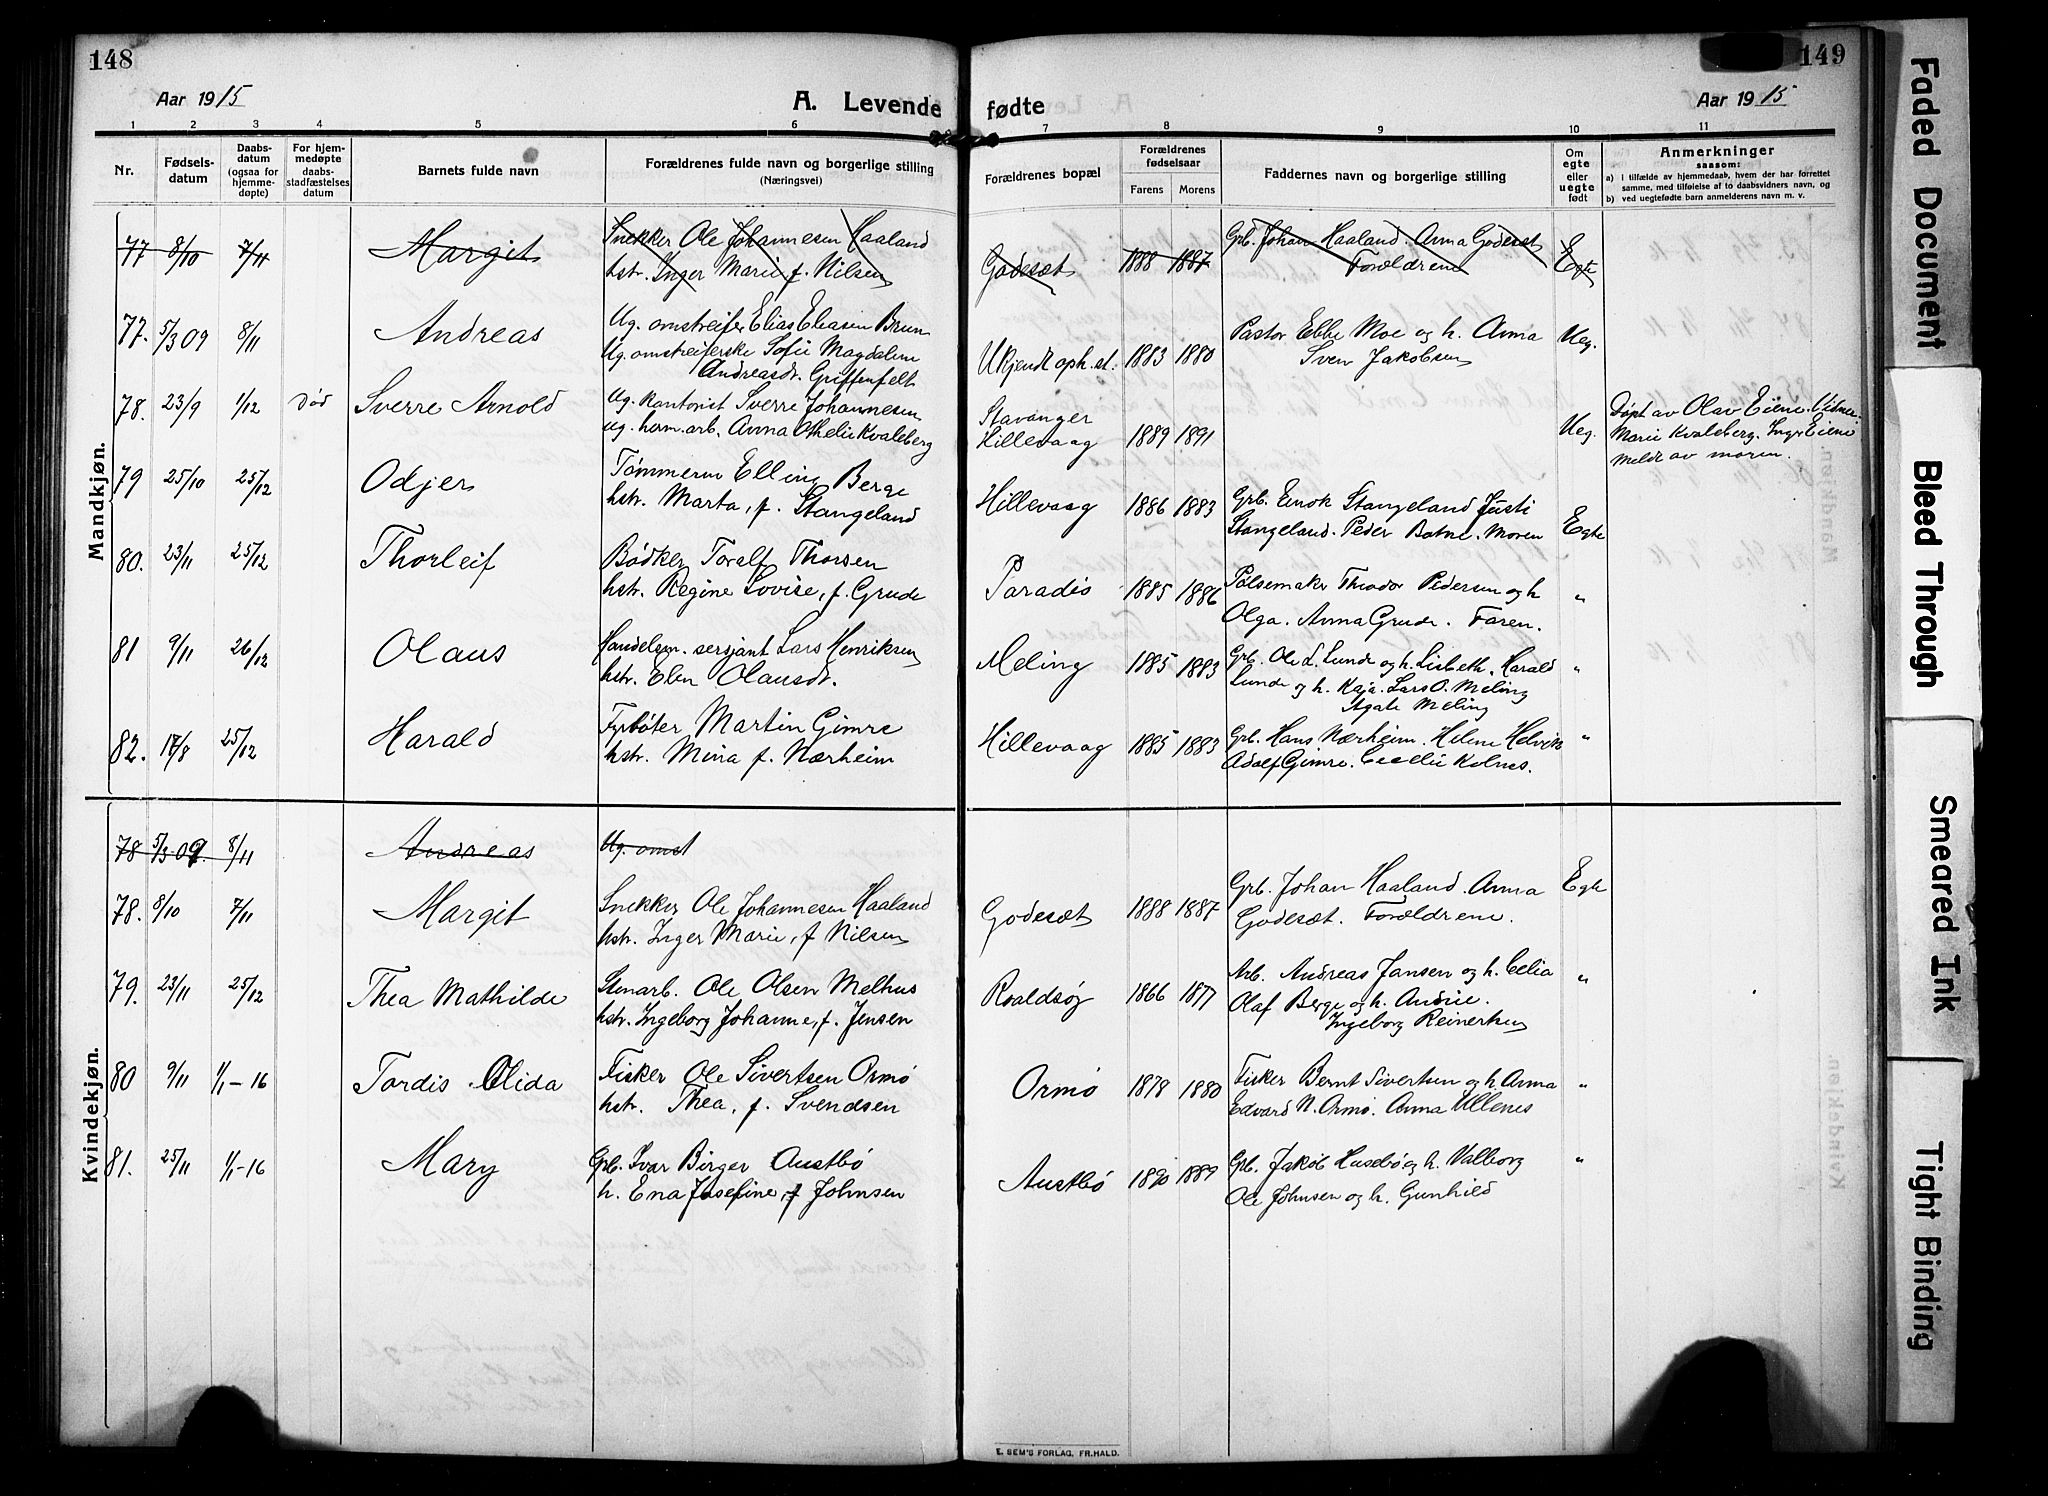 148
Aar 1915
A. Levende
1 2 3 4 5 6
Nr.
Fødsels-
datum
Daabs-
datum
(ogsaa for
hjemme-
døpte)
For hjem-
medøpte
daabs-
stadfæstelses
datum
Barnets fulde navn
Forældrenes fulde navn og borgerlige stilling
(Næringsvei)
Mandkjøn.
77 8/10 7/11 Margit Snekker Ole Johannesen Haaland
hstr. Inger Marie, f. Nilsen
77. 5/3 09 8/11 Andreas Ug. omstreifer Elias Eliasen Brun
Ug. omstreiferske Sofie Magdalene
Andreasdr. Griffenfelt
78. 23/9 1/12 Død Sverre Arnold Ug. kontorist Sverre Johannesen
ug. hom. arb. Anna Othelie Kvaleberg
79 25/10 25/12 Odjer Tømmerm Elling Berge
hstr. Marta, f. Stangeland
80. 23/11 25/12 Thorleif Bødker Toralf Thorsen
hstr. Regine Lovise, f. Grude
81 9/11 26/12 Olaus Handelsm. sersjant Lars Henriksen
hstr. Elen Olausdr.
82. 17/8 25/12 Harald Fyrbøter Martin Gimre
hstr. Mina f. Nærheim
Kvindekjøn.
78 5/3 09. 8/11 Andreas Ug. omst
78. 8/10 7/11 Margit Snekker Ole Johannesen Haaland
hstr. Inger Marie, f Nilsen
79. 23/11 25/12 Thea Mathilde Stenarb. Ole Olsen Melhus
hstr. Ingeborg Johanne, f. Jensen
80 9/11 1/1-16 Tordis Olida Fisker Ole Sivertsen Ormø
hstr. Thea, f. Svendsen
81. 25/11 1/1-16 Mary Grb. Ivar Birger Austbø
h. Ena Josefine, f Johnsen
149
fødte
Aar 1915
7 8 9 10 11
Forældrenes bopæl
Forældrenes
fødselsaar
Farens Morens
Faddernes navn og borgerlige stilling
Om
egte
eller
uegte
født
Anmerkninger
saasom:
a) i tilfælde av hjemmedaab, hvem der har forrettet
samme, med tilføielse af to daabsvidners navn, og
b) ved uegtefødte barn anmelderens navn m. v.
Godesæt 1888 1887 Grb. Johan Haaland. Anna Godesæt Egte
Forældrene
Ukjendt oph. st. 1883 1880 Pastor Ebbe Moe og h. Anna Ueg.
Sven Jakobsen
Stavanger
Hillevaag 1889 1891 Ueg. Døpt av Olav Eiene. Vidner
Marie Kvaleberg. Inga Eiene
meldt av moren.
Hillevaag 1886 1883 Grb. Enok Stangeland Justi
Stangeland. Peder Botne. Moren Egte
Paradis 1885 1886 Pølsemakr Theodor Pedersen og h "
Olga. Anna Grude. Faren.
Meling 1885 1883 Grb. Ole L. Lunde og h. Lisbeth. Harald "
Lunde og h. Kaja. Lars O. Meling
Agate Meling
Hillevaag 1885 1883 Grb. Hans Nærheim. Helene Helvik "
Adolf Gimre. Cecelie Kolnes.
Godesæt 1888 1887 Grb. Johan Haaland. Anna Egte
Godesæt. Forældrene.
Roaldsøy 1866 1877 Arb. Andreas Jansen og h. Celia "
Olaf Berge og h. Andrie.
Ingeborg Reinertsen
Ormø 1878 1880 Fisker Bernt Sivertsen og h. Anna "
Edvard N. Ormø. Anna Ullenes
Austbø 1890 1889 Grb. Jakob Husebø og h. Valborg "
Ole Johnsen og h. Gunhild
E. SEM'S FORLAG, FR.HALD.
Faded Document
Bleed Through
Smeared Ink
Tight Binding